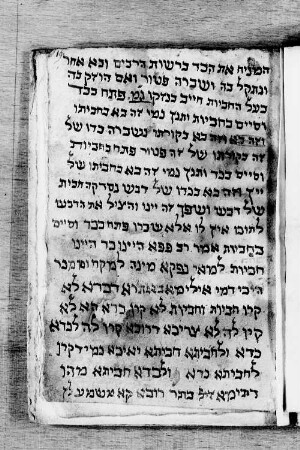 המניח את הכד ברשות הרבים ובא אחר
ונתקל בה ושברה פטור ואם הוזק בה
בעל החבית חייב בנזקו גמ פתח בכד
וסיים בחבית ותנן נמי זה בא בחביתו
וזה בא בקורתו נשברה כדו של
זה בקורתו של זה פטור פתח בחבית
וסיים בכד ותנן נמי זה בא בחביתו של
יין וזה בא בכדו של דבש נסדקה חבית
של דבש ושפך זה יינו והציל את הדבש
לתוכו אין לו אלא שכרו פתח בכד וסיים
בחבית אמר רב פפא היינו כד היינו
חבית למאי נפקא מינה למקח וממכר
היכי דמי אילימא באתרא דכדא לא
קרו חבית וחבית לא קרו כדא הא לא
קרו לה לא צריכא דרובא קרו לה לכדא
כדא ולחביתא חביתא ואיכא נמי דקרו
לחביתא כדא ולכדא חביתא מהו
דתימא זיל בתר רובא קא משמע לן